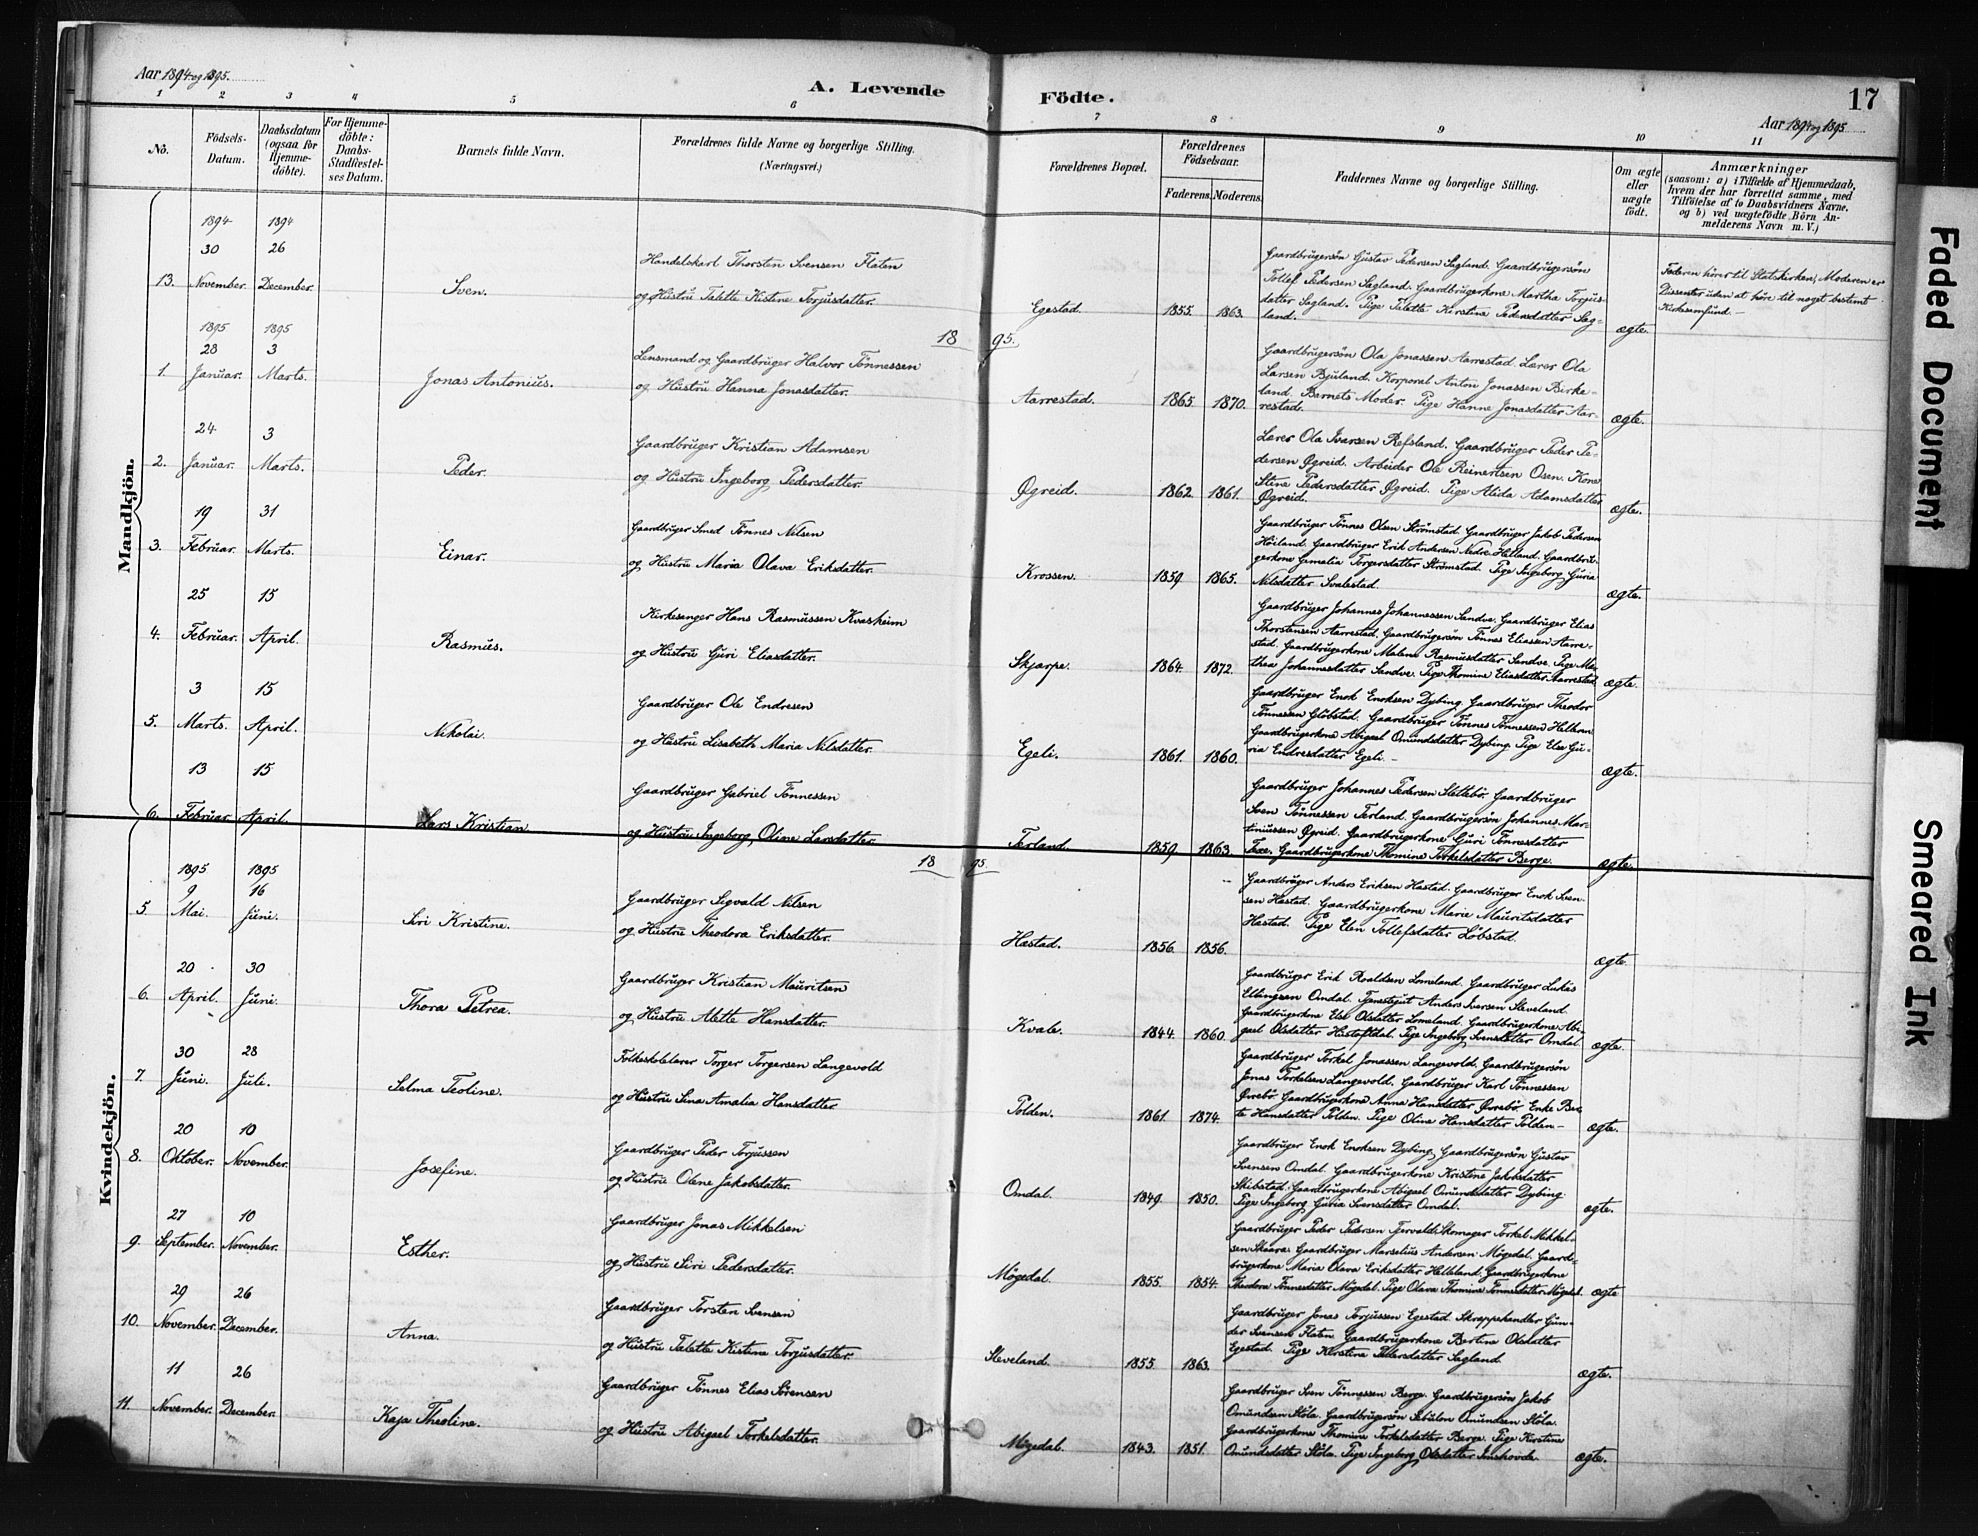 Aar 1894 og 1895.
A. Levende
Födte.
17
Aar 1894 og 1895
1 2 3 4 5 6 7 8 9 10 11
No.
Födsels-Datum.
Daabsdatum (ogsaa for Hjemme-döbte).
For Hjemme-döbte: Daabs-Stadfæstel-ses Datum.
Barnets fulde Navn.
Forældrenes fulde Navne og borgerlige Stilling.
(Næringsvei.)
Forældrenes Bopæl.
Forældrenes Födselsaar.
Faderens. Moderens.
Faddernes Navne og borgerlige Stilling.
Om ægte eller uægte födt.
Anmærkninger
(saasom: a) i Tilfælde af Hjemmedaab,
hvem der har forrettet samme, med
Tilföielse af to Daabsvidners Navne.
og b) ved uægtefödte Börn An-
melderens Navn m. V.)
Mandkjön.
1894 1894
30 26
13. November. December.
Sven.
Handelskarl Thorsten Svensen Flaten
og Hustru Talette Kistine Torjusdatter.
Egestad. 1855. 1863.
Gaardbrugersøn Gustav Pedersen Sagland. Gaardbrugersøn
Tollef Pedersen Sagland. Gaardbrugerkone Martha Torjus-
datter Sagland. Pige Talette Kirstine Pedersdatter Sag-
land.
ægte.
Faderen hører til Statskirken, Moderen er
Dissenter uden at høre til noget bestemt
Kirkesamfund.-
18 95.
1895 1895
28 3
1. Januar. Marts.
Jonas Antonius.
Lensmand og Gaardbruger Halvor Tønnessen
og Hustru Hanna Jonasdatter.
Aarrestad. 1865 1870.
Gaardbrugersøn Ola Jonassen Aarrestad. Lærer Ola
Larsen Bjuland. Korporal Anton Jonassen Birke-
land. Barnets Moder. Pige Hanne Jonasdatter Aar-
restad.
ægte.
24 3
2. Januar. Marts.
Peder.
Gaardbruger Kristian Adamsen
og Hustru Ingeborg Pedersdatter.
Øgreid. 1862. 1861.
Lærer Ola Ivarsen Refsland. Gaardbruger Peder Pe-
dersen Øgreid. Arbeider Ole Reinertsen Osen. Kone
Stine Pedersdatter Øgreid. Pige Alida Adamsdatter
Øgreid.
ægte.
19 31
3. Februar. Marts.
Einar.
Gaardbruger Smed Tønnes Nilsen
og Hustru Maria Olava Eriksdatter.
Krossen. 1859. 1865.
Gaardbruger Tønnes Olsen Strømstad. Gaardbruger Jakob Pedersen
Høiland. Gaardbruger Erik Andersen Nedre Helland. Gaardbru-
gerkone Gemalia Torgersdatter Strømstad. Pige Ingeborg Guria
Nilsdatter Svalestad.
ægte.
25 15
4. Februar. April.
Rasmus.
Kirkesanger Hans Rasmussen Kvasheim
og Hustru Guri Eliasdatter.
Skjærpe. 1864. 1872.
Gaardbruger Johannes Johannessen Sandve. Gaardbruger Elias
Thorstensen Aarrestad. Gaardbrugersøn Tønnes Eliassen Aarre-
stad. Gaardbrugerkone Malene Rasmusdatter Sandve. Pige Ma-
thea Johannesdatter Sandve. Pige Thomine Eliasdatter Aarrestad.
ægte.
3 15
5. Marts. April.
Nikolai.
Gaardbruger Ole Endresen
og Hustru Lisabeth Maria Nilsdatter.
Egeli. 1861. 1860.
Gaardbruger Enok Enoksen Dybing. Gaardbruger Theodor
Tønnessen Gløbstad. Gaardbruger Tønnes Tønnessen Helleren
Gaardbrugerkone Abigael Omundsdatter Dybing. Pige Else Gu-
ria Endresdatter Egeli.-
ægte.
13 15
6. Februar April.
Lars Kristian
Gaardbruger Gabriel Tønnessen
og Hustru Ingeborg Oline Larsdatter
Terland. 1859. 1863.
Gaardbruger Johannes Pedersen Slettebø. Gaardbruger
Sven Tønnessen Terland. Gaardbrugersøn Johannes Mar-
tiniussen Øgreid. Gaardbrugerkone Guri Tønnesdatter
Gaardbrugerkone Thomine Torkelsdatter Berge.
ægte.
18 95.
Kvindekjön.
1895 1895
9 16
5. Mai. Juni.
Siri Kristine.
Gaardbruger Sigvald Nilsen
og Hustru Theodora Eriksdatter.
Hæstad. 1856. 1856.
Gaardbruger Anders Eriksen Hæstad. Gaardbruger Enok Sven-
sen Hæstad. Gaardbrugerkone Marie Mauritsdatter
Hæstad. Pige Elen Tollefsdatter Løbstad.
ægte.
20 30
6. April. Juni.
Thora Petrea.
Gaardbruger Kristian Mauritsen
og Hustru Alette Hansdatter.
Kvale. 1844. 1860.
Gaardbruger Erik Roaldsen Lomeland. Gaardbruger Lukas
Ellingsen Omdal. Tjenestegut Anders Iversen Sleveland.
Gaardbrugerkone Else Olsdatter Lomeland. Gaardbrugerkone Abi-
gael Olsdatter Pige Ingeborg Svensdatter Omdal.
ægte.
30 28
7. Juni. Juli.
Selma Teoline.
Folkeskolelærer Torger Torgersen Langevold
og Hustru Sina Amalia Hansdatter
Polden. 1861. 1874.
Gaardbruger Torkel Jonassen Langevold. Gaardbrugersøn
Jonas Torkelsen Langevold. Gaardbruger Karl Tønnessen
Øvrebø. Gaardbrugerkone Anna Hansdatter Øvrebø. Enke Ber-
te Hansdatter Polden. Pige Oline Hansdatter Polden-
ægte.
20 10
8. Oktober. November.
Josefine.
Gaardbruger Peder Torjussen
og Hustru Olene Jakobsdatter.
Omdal. 1849. 1850.
Gaardbruger Enok Enoksen Dybing. Gaardbrugersøn Gustav
Svensen Omdal. Gaardbrugerkone Kristine Jakobsdatter
Skibstad. Gaardbrugerkone Abigael Omundsdatter Dybing.
Pige Ingeborg Guria Svensdatter Omdal.
ægte.
27 10
9. September. November.
Esther.
Gaardbruger Jonas Mikkelsen
og Hustru Siri Pedersdatter.
Møgedal. 1855. 1854.
Gaardbruger Peder Pedersen Tjervald. Skomager Torkel Mikkel-
sen Skaara. Gaardbruger Marselius Andersen Møgedal. Gaard-
brugerkone Maria Olava Eriksdatter Helleland. Gaardbrugerkone
Theodora Tønnesdatter Møgedal. Pige Olava Thomine Tønnesdatter Møgedal.
ægte
29 26
10. November. December.
Anna.
Gaardbruger Torsten Svensen
og Hustru Talette Kistina Torjusdatter.
Sleveland. 1855. 1863.
Gaardbruger Jonas Torjussen Egestad. Skreppehandler Gun-
der Svensen Flaten. Gaardbrugerkone Bertine Olsdatter
Egestad. Pige Kirstina Pedersdatter Sagland.
ægte.
11 26
11. November. December.
Kaja Theoline.
Gaardbruger Tønnes Elias Sørensen
og Hustru Abigael Torkelsdatter.
Møgedal. 1843. 1851.
Gaardbruger Sven Tønnessen Berge. Gaardbrugersøn Jakob
Omundsen Støla. Gaardbrugersøn Sebulon Omundsen Støla.
Gaardbrugerkone Thomine Torkelsdatter Berge. Pige Kirstine
Omundsdatter Støla. Pige Ingeborg Olsdatter
ægte.
Faded Document
Smeared Ink